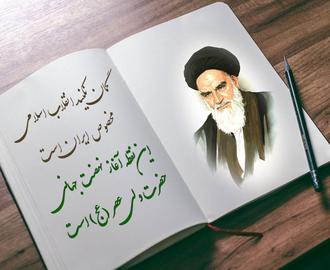 گمان نکنید انقلاب اسلامی
مخصوص ایران است
این نقطه آغاز نهضت جهانی
حضرت ولی عصر (عج) است